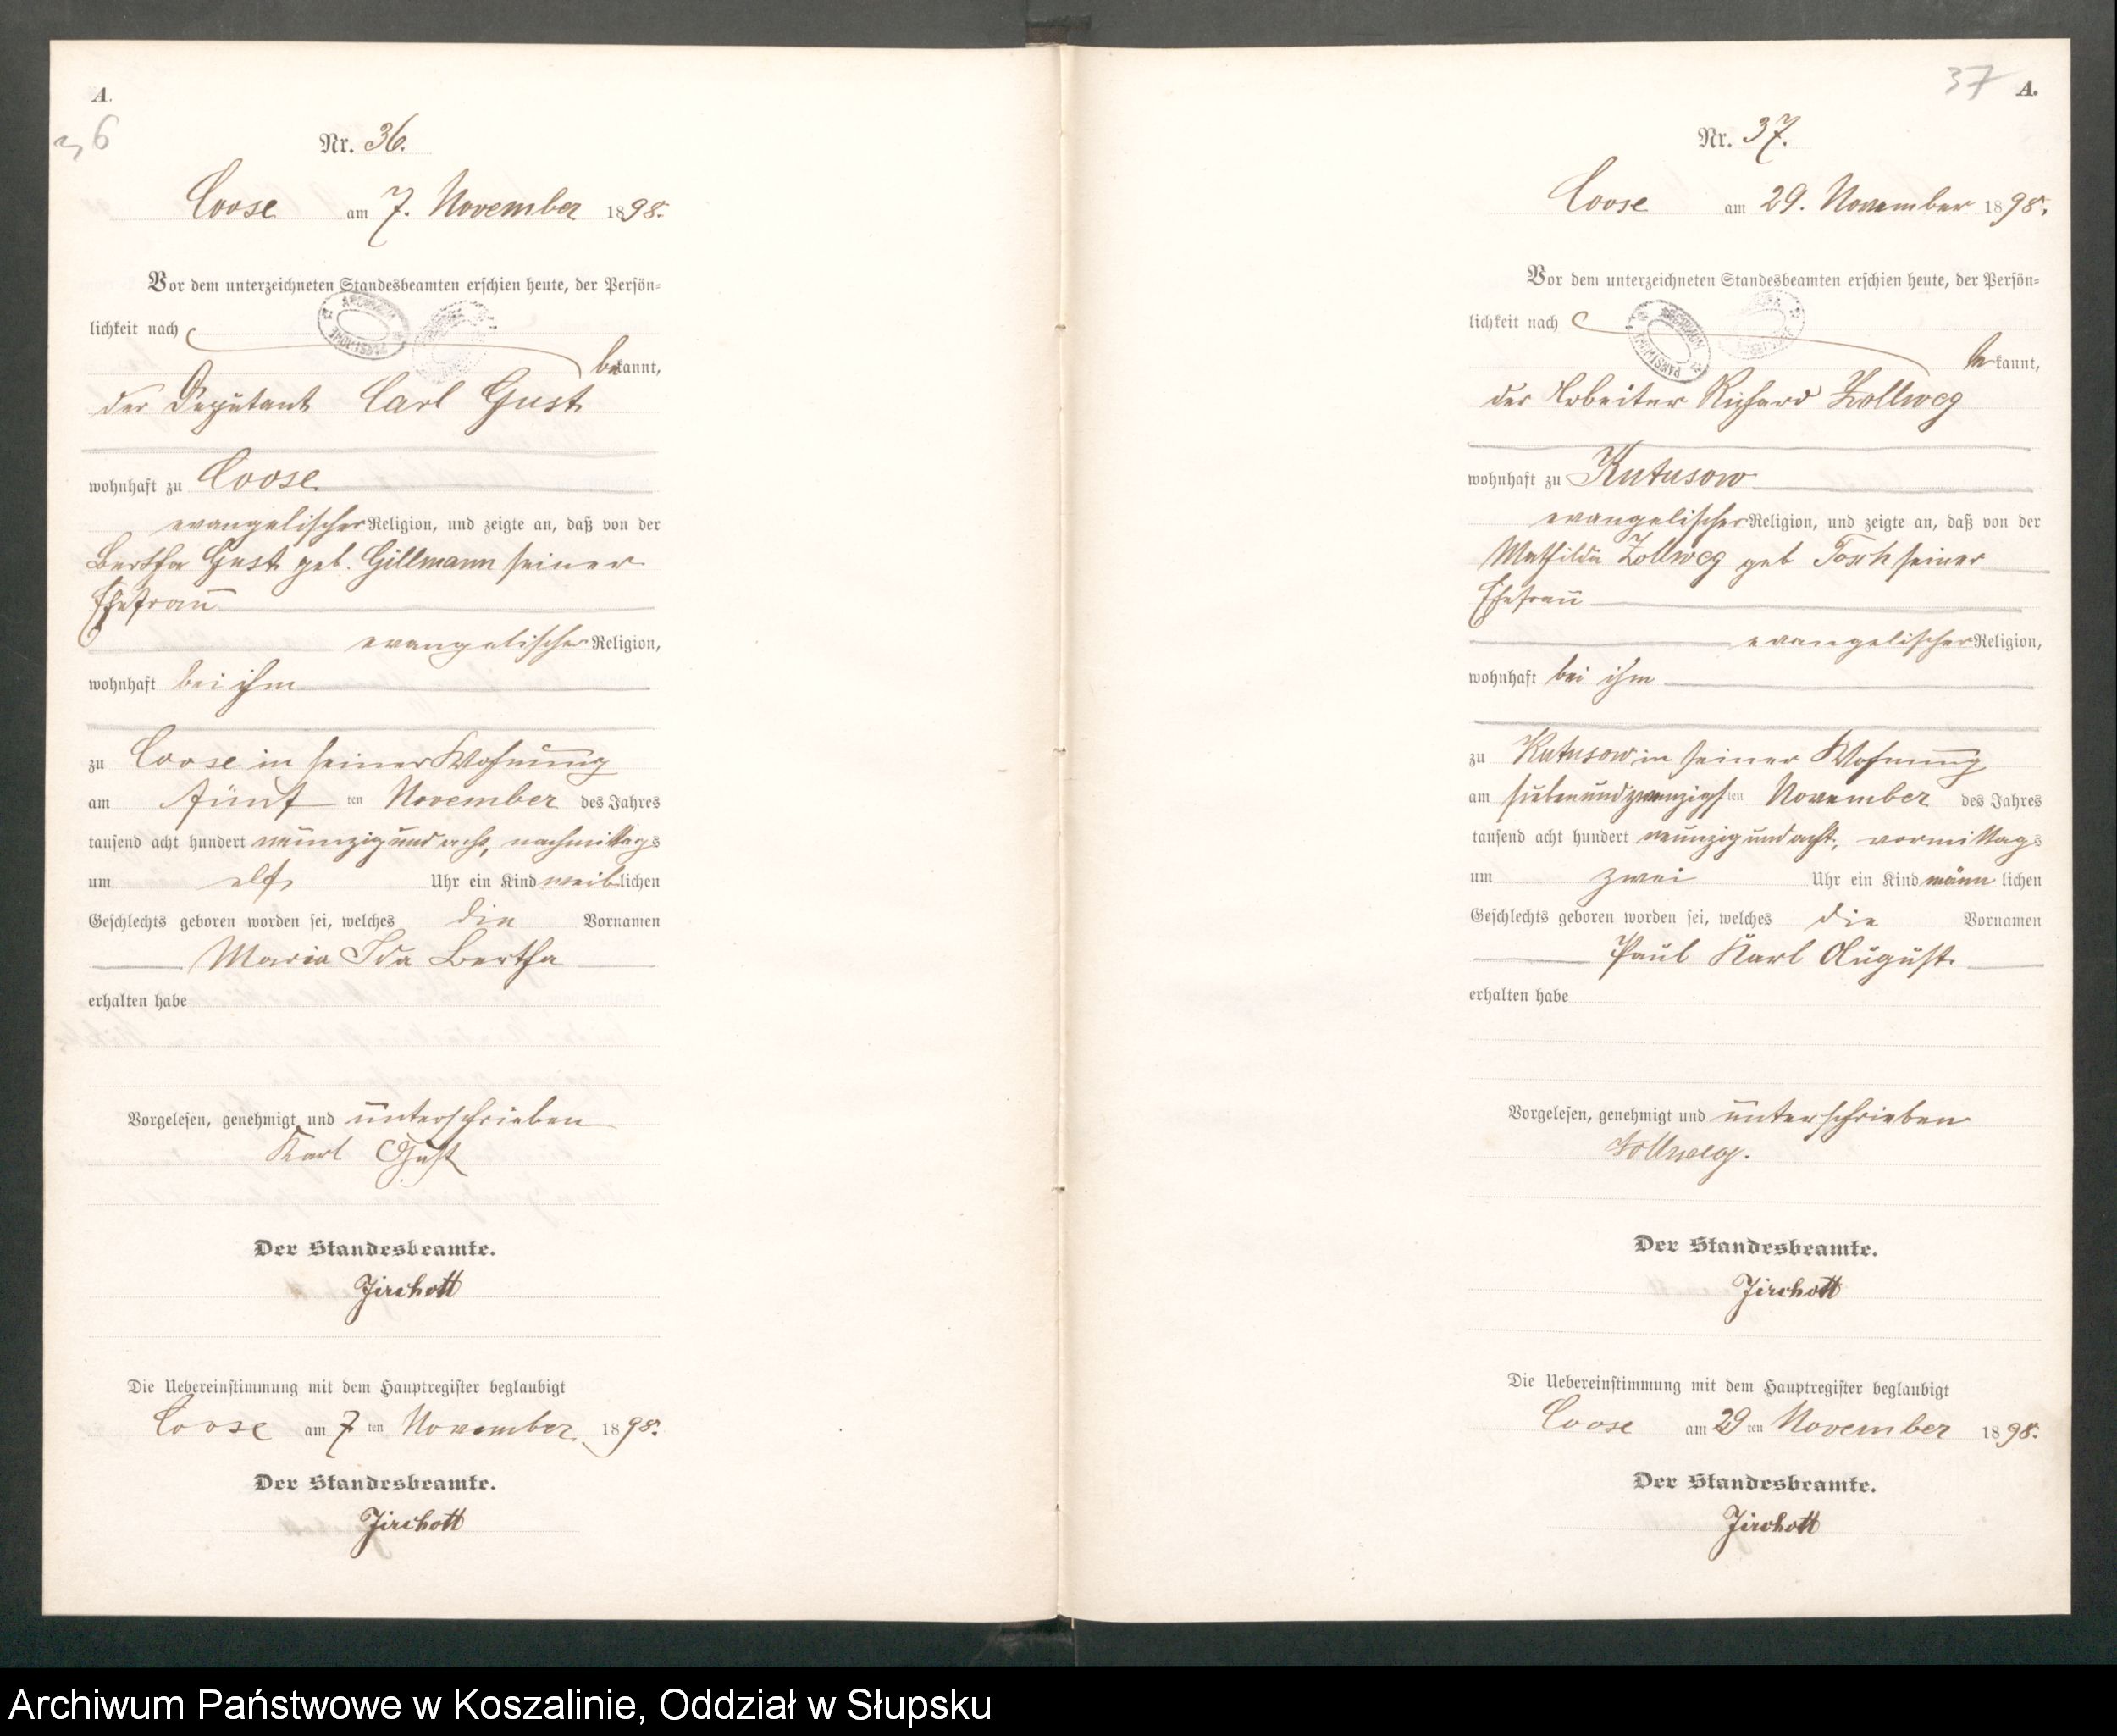 A.
36
Nr. 36.
Coose am 7. November 1898.
Vor dem unterzeichneten Standesbeamten erschien heute, der Persön=
lichkeit nach
bekannt,
der Deputant Carl Gust
wohnhaft zu Coose
evangelischer Religion, und zeigte an, daß von der
Bertha Gust geb. Gillmann seiner
Ehefrau
evangelischer Religion,
wohnhaft bei ihm
zu Coose in seiner Wohnung
am fünf ten November des Jahres
tausend acht hundert neunzig und acht, nachmittags
um elf Uhr ein Kind weiblichen
Geschlechts geboren worden sei, welches die Vornamen
Maria Ida Bertha
erhalten habe
Vorgelesen, genehmigt und unterschrieben
Karl Gust
Der Standesbeamte.
Jirchott
Die Uebereinstimmung mit dem Hauptregister beglaubigt
Coose am 7 ten November 1898.
Der Standesbeamte.
Jirchott
37 A.
Nr. 37.
Coose am 29. November 1898.
Vor dem unterzeichneten Standesbeamten erschien heute, der Persön=
lichkeit nach
bekannt,
der Arbeiter Richard Zollweg
wohnhaft zu Kutusow
evangelischer Religion, und zeigte an, daß von der
Mathilde Zollweg geb Tosch seiner
Ehefrau
evangelischer Religion,
wohnhaft bei ihm
zu Kutusow in seiner Wohnung
am siebenundzwanzigsten November des Jahres
tausend acht hundert neunzig und acht, vormittags
um zwei Uhr ein Kind männ lichen
Geschlechts geboren worden sei, welches die Vornamen
Paul Karl August
erhalten habe
Vorgelesen, genehmigt und unterschrieben
Zollweg.
Der Standesbeamte.
Jirchott
Die Uebereinstimmung mit dem Hauptregister beglaubigt
Coose am 29 ten November 1898.
Der Standesbeamte.
Jirchott
Archiwum Państwowe w Koszalinie, Oddział w Słupsku